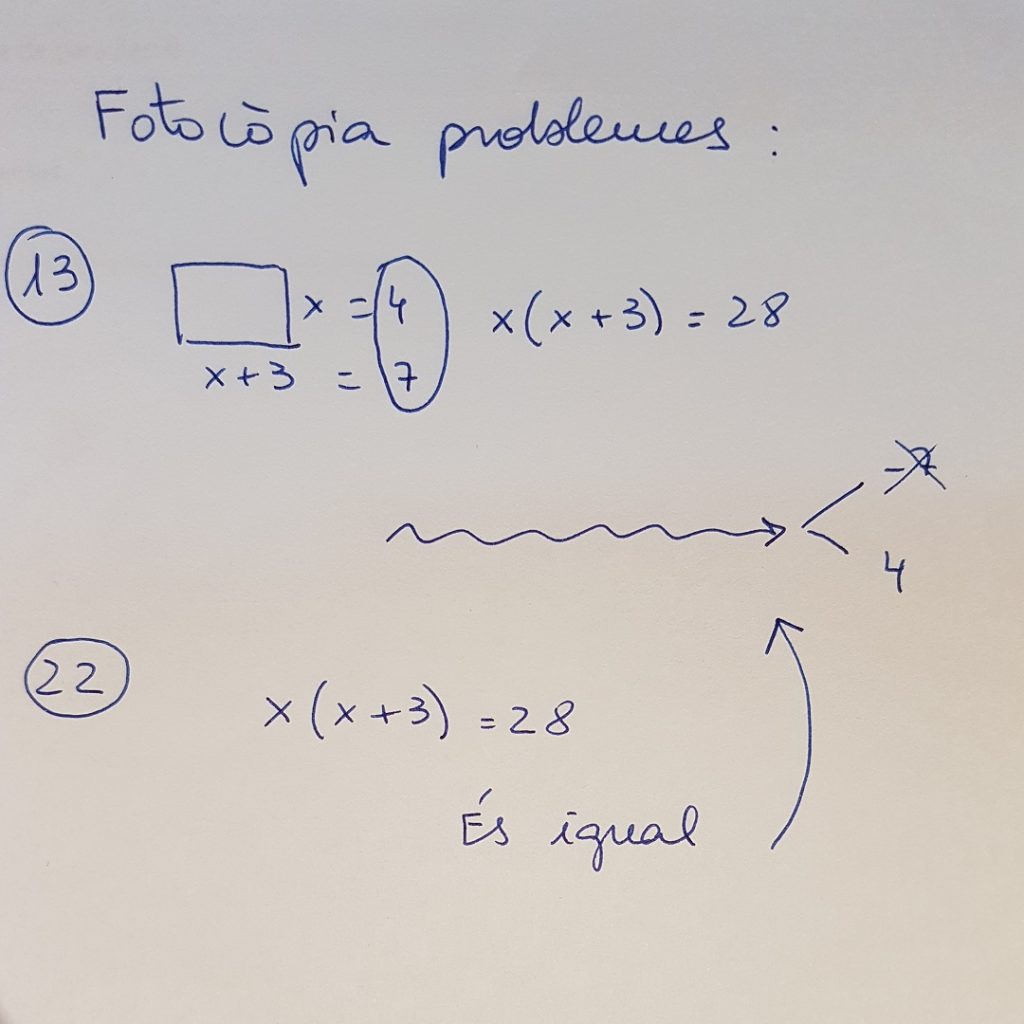 Fotocòpia problemes :
13
x = 4 x(x+3) = 28
x+3 = 7
-7
4
22
x(x+3) = 28
És igual